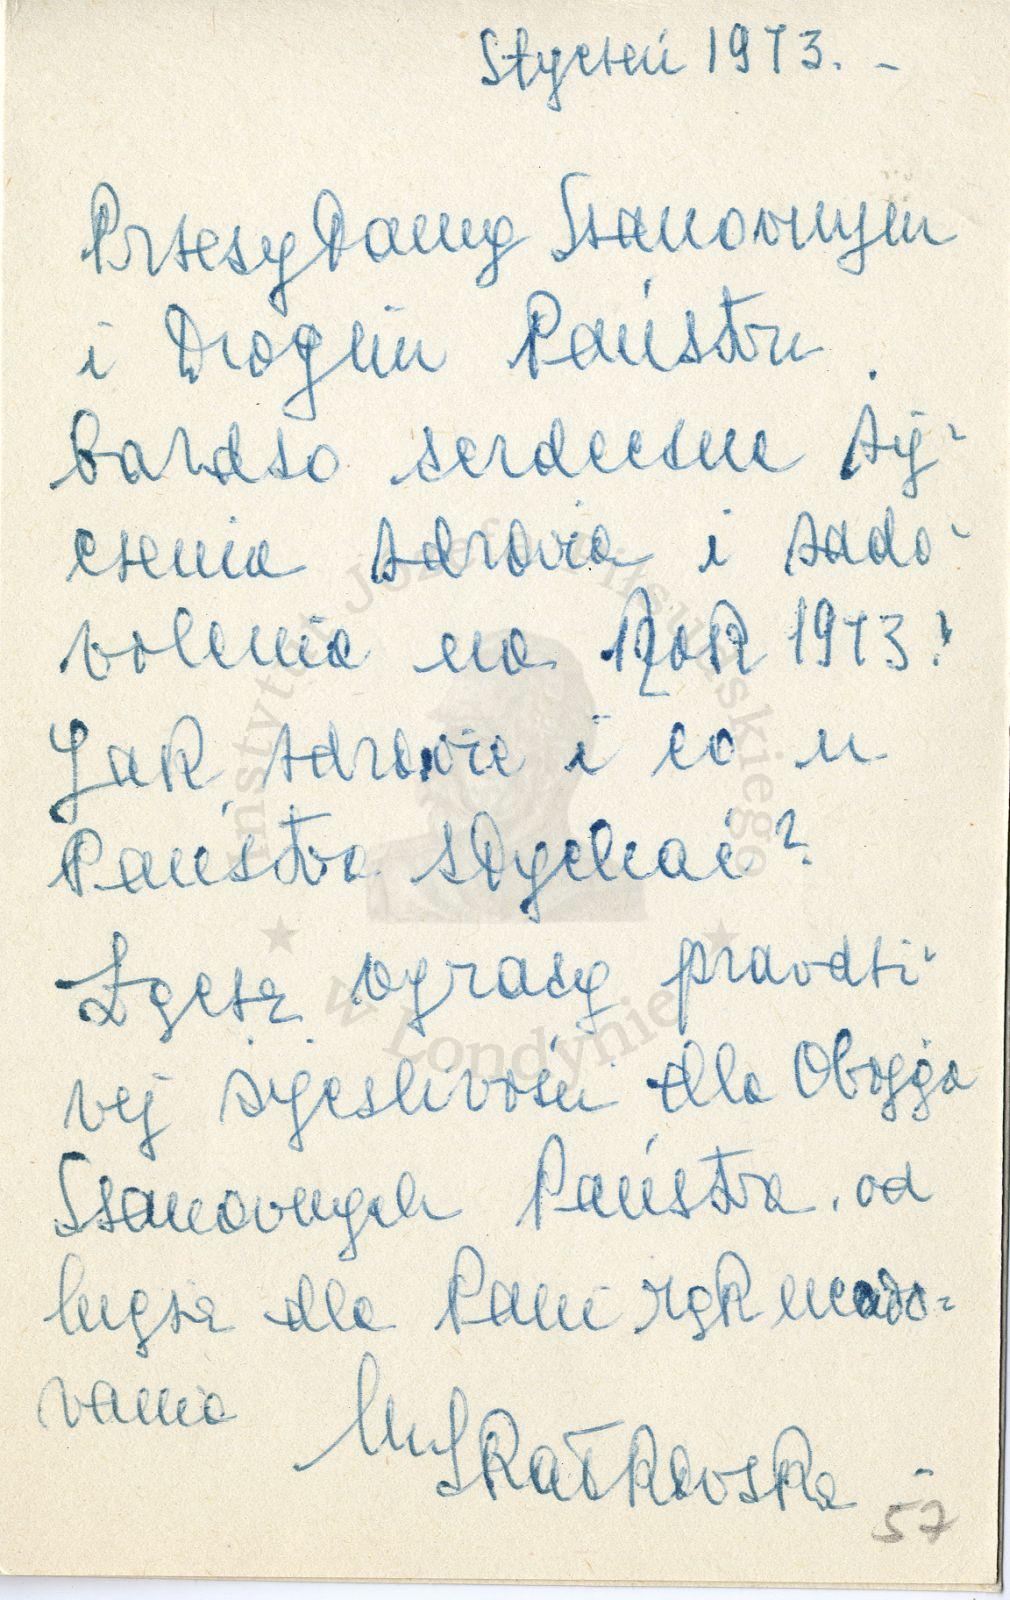 Styczeń 1973. -
Przesyłamy Szanownym
i Drogim Państwu
bardzo serdeczne ży-
czenia zdrowia i zado-
wolenia na Rok 1973!
Jak zdrowie i co u
Państwa słychać?
Łączę wyrazy prawdzi-
wej życzliwości dla Obojga
Szanownych Państwa, od
męża dla Pani rąk ucało-
wania
MSkałkowska -
57
Instytut Józefa Piłsudskiego
w Londynie